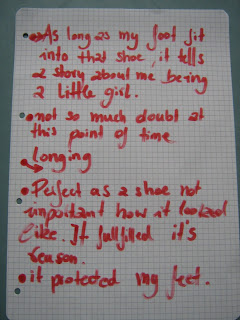 • As long as my foot fit
into that shoe, it tells
a story about me being
a little girl.
• not so much doubt at
this point of time
longing
• Perfect as a shoe not
important how it looked
like. It fullfilled it's
reason.
• it protected my feet.